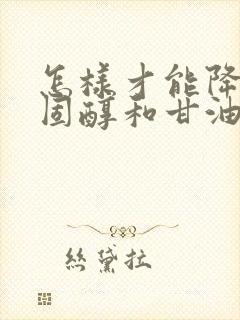 怎樣才能降
固醇和甘油
絲黛拉